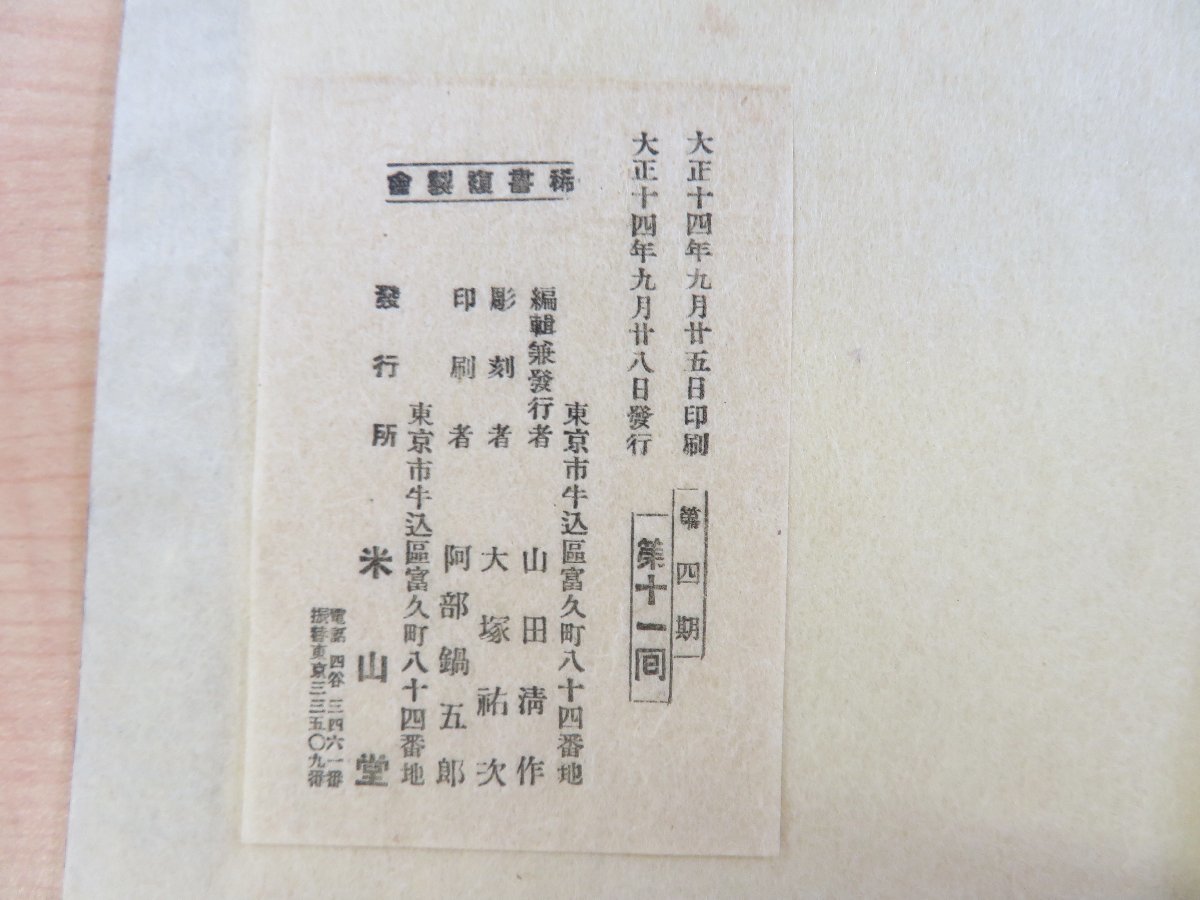 大正十四年九月廿五日印刷
大正十四年九月廿八日發行
第四期
第十一回
稀書複製會
東京市牛込區富久町八十四番地
編輯兼發行者 山田淸作
彫刻者 大塚祐次
印刷者 阿部鍋五郎
東京市牛込區富久町八十四番地
發行所 米山堂
電話四谷三四六一番
振替東京三三五〇九番